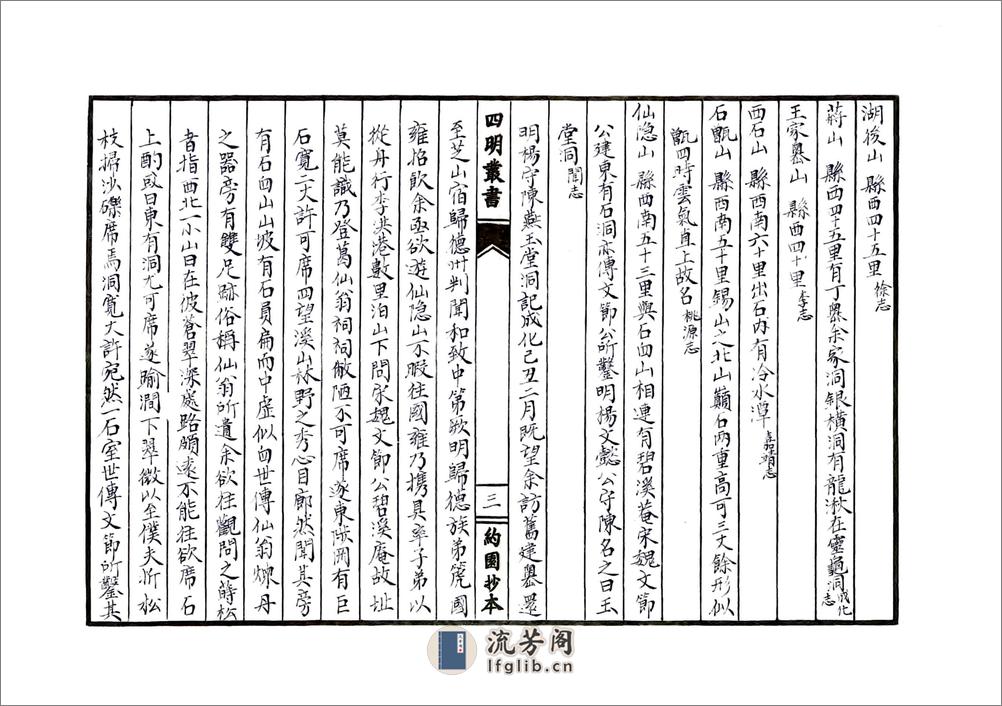 湖後山 縣西四十五里 徐志
蔣山 縣西四十五里有丁嶴余家洞銀橫洞有龍湫在靈龜洞 成化志
王家嶴山 縣西四十里 李志
西石山 縣西南六十里出石內有冷水潭 嘉靖志
石甑山 縣西南五十里錫山之北山巔石兩重高可三丈餘形似
甑四時雲氣直上故名 桃源志
仙隐山 縣西南五十三里與石面山相連有碧溪菴宋魏文節
公建東有石洞亦傳文節公所鑿明楊文懿公守陳名之曰玉
堂洞 聞志
明楊守陳燕玉堂洞記成化己丑二月既望余訪舊建嶴還
至芝山宿歸德州判聞和致中第欲明歸德族弟箎國
雍招飲余亟欲遊仙隐山不暇往國雍乃携具率子弟以
從舟行李洪港數里泊山下問宋魏文節公碧溪庵故址
莫能識乃登葛仙翁祠祠敝陋不可席遂東陟岡有巨
石寬二丈許可席四望溪山林野之秀心目廓然聞其旁
有石面山山坡有石員扁而中虛似面世傳仙翁煉丹
之器旁有雙足跡俗稱仙翁所遺余欲往觀問之蒔松
者指西北一小山曰在彼蒼翠深處路頗遠不能往欲席石
上酌或曰東有洞尤可席遂踰澗下翠微以至僕夫折松
枝掃沙礫席焉洞寬大許宛然一石室世傳文節所鑿其
四明叢書
三
約園抄本
流芳阁
lfglib.cn